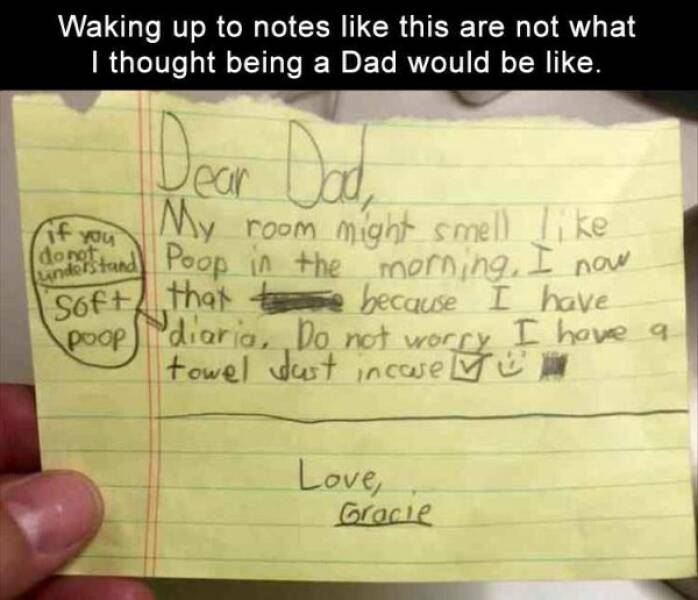 Waking up to notes like this are not what
I thought being a Dad would be like.
Dear Dad,
My room might smell like
Poop in the morning. I now
that because I have
diaria. Do not worry I have a
towel Just incase
if you
do not
understand
soft
poop
Love,
Gracie